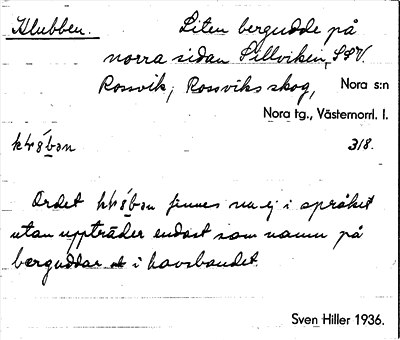 Klubben. Liten bergudde på
norra sidan Sillviken, SSV.
Rossvik, Rossviks skog, Nora s:n
Nora tg., Västernorrl. l.
318.
Ordet finnes nu ej i språket
utan uppträder endast som namn på
berguddar i havsbandet.
Sven Hiller 1936.